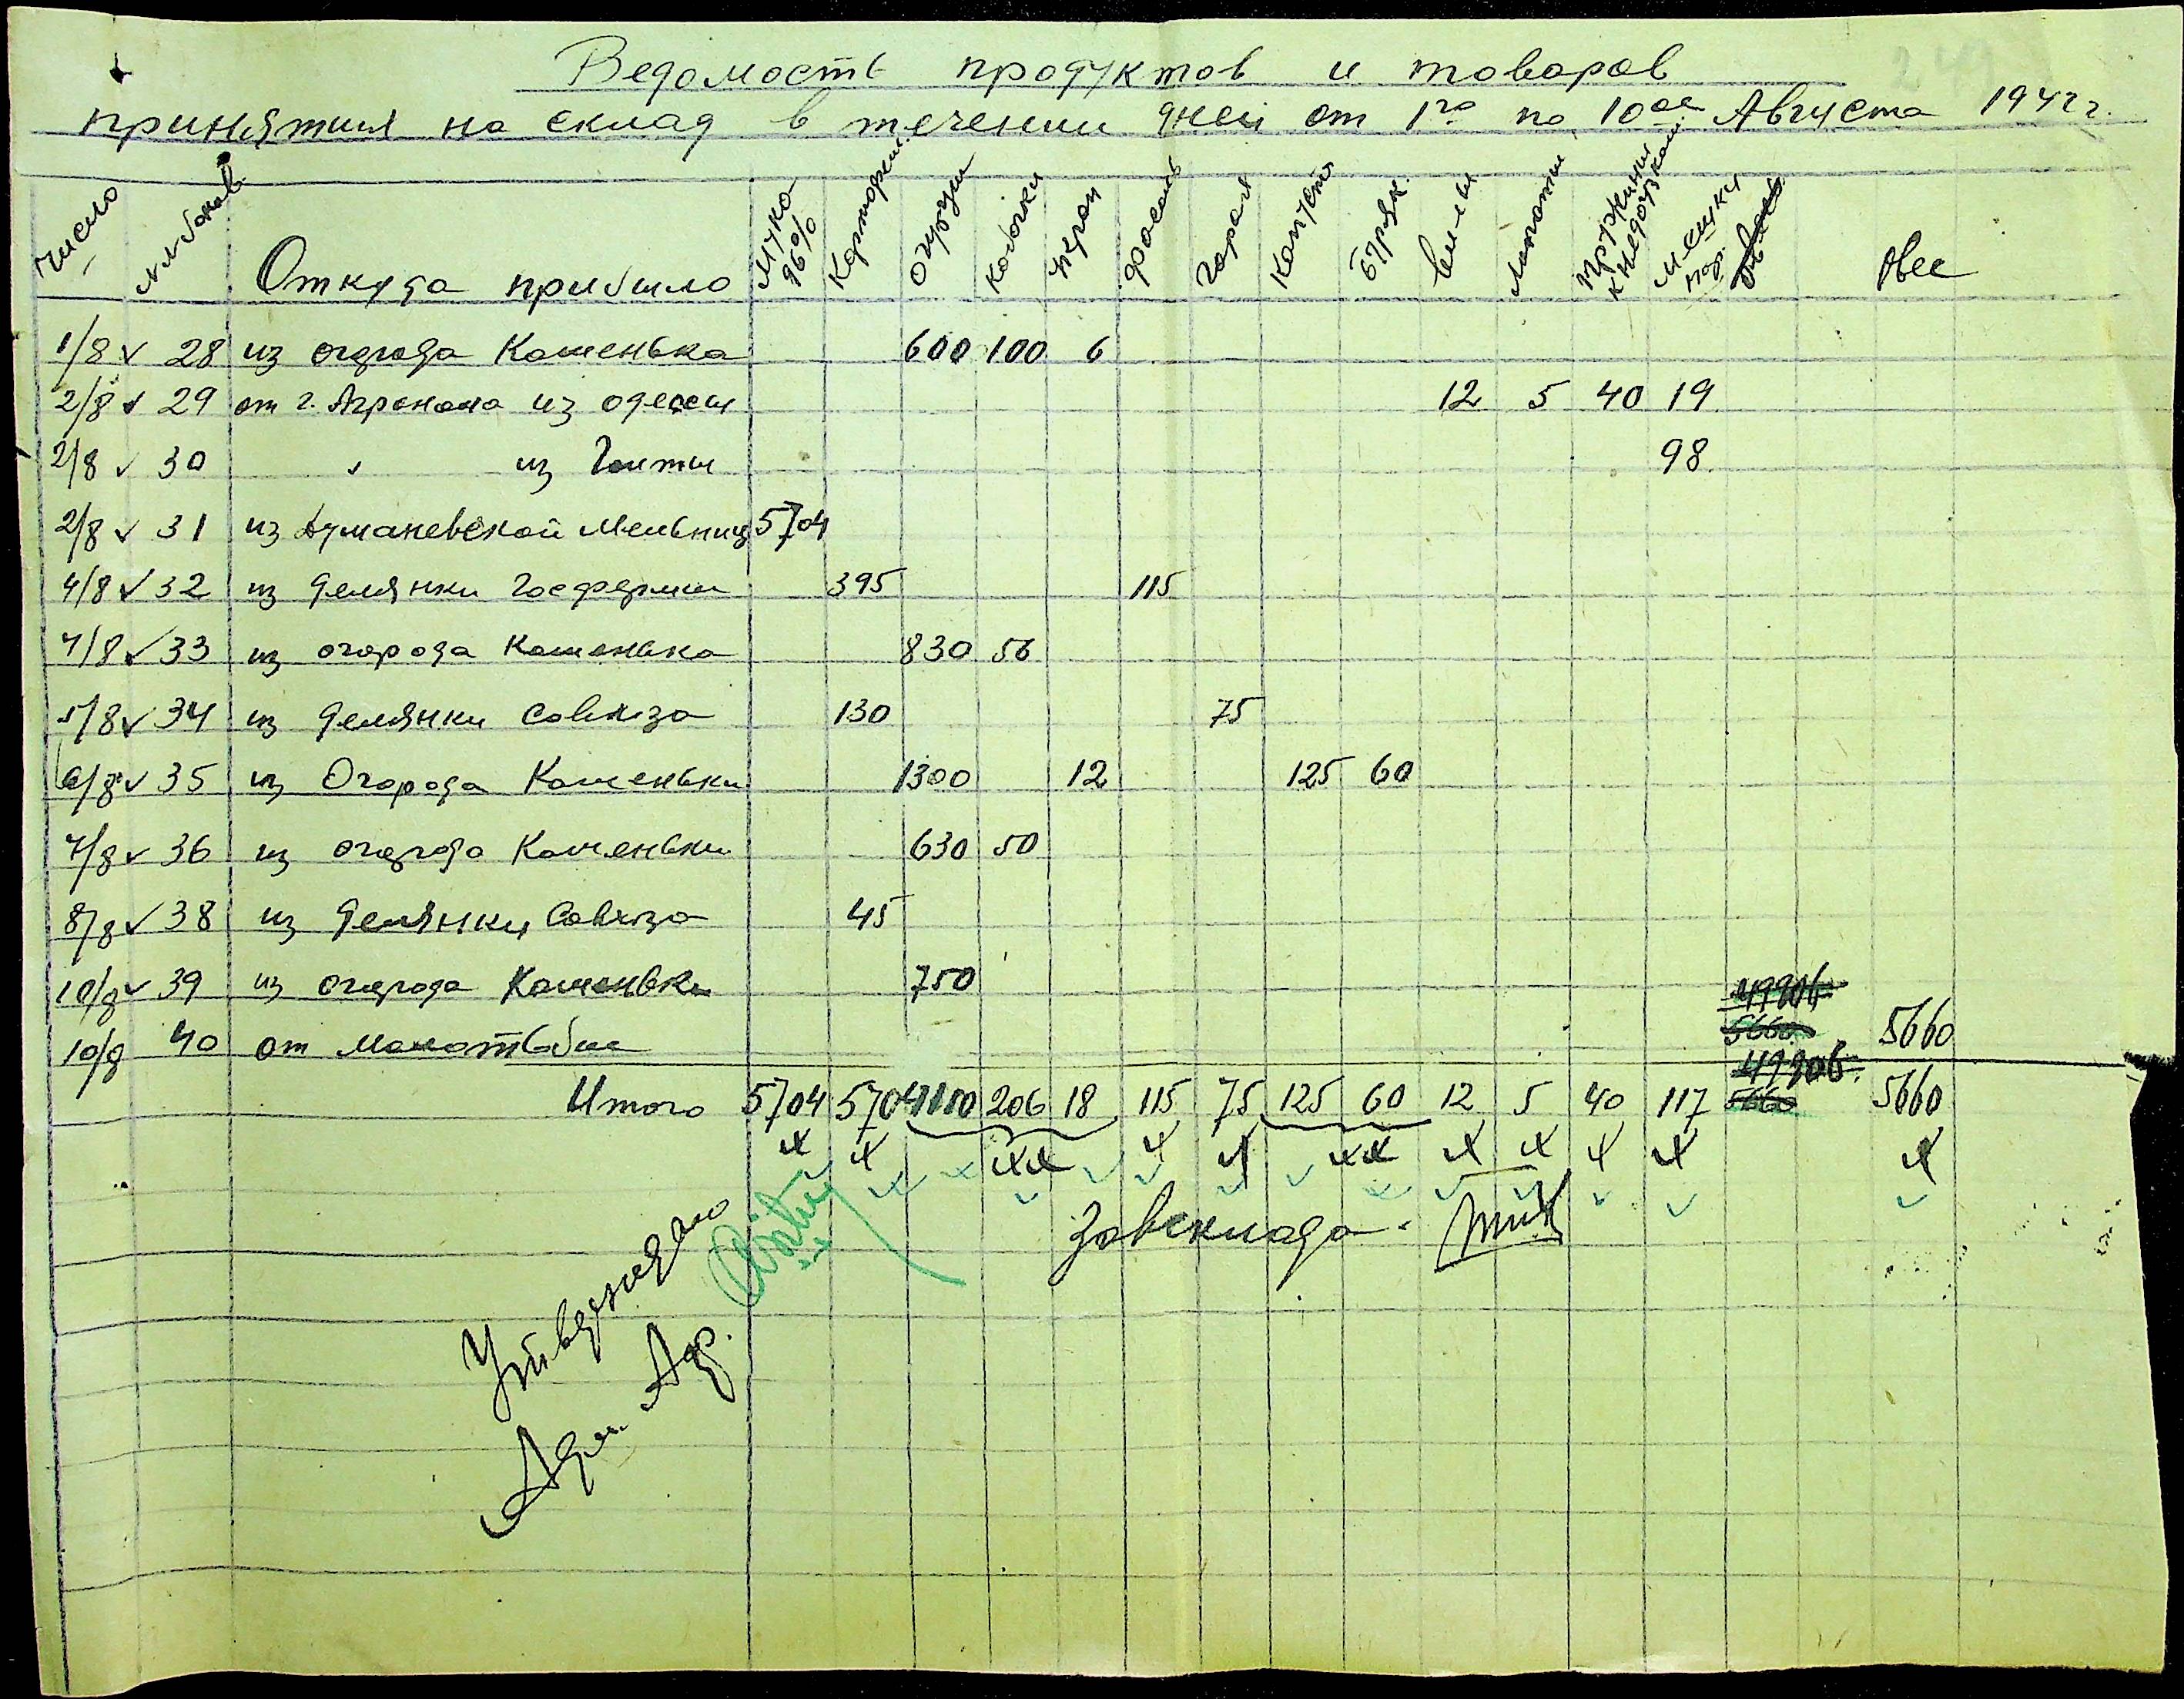 Ведомость продуктов и товаров
принятия на склад в течении дней от 1го по 10ое Августа 1942 г.
Число №№ бонов Откуда прибыло Мука 96% Картофель Огурцы Кабачки Укроп Фасоль Горох Капуста Буряк. Вилы Лопаты Пружины к недогузкам Мешки пор. Овес
1/8 v 28 из огорода Каменька 600 100 6
2/8 v 29 от г. Агронома из одессы 12 5 40 19
2/8 v 30 " из Голты 98
2/8 v 31 из Думаневской Мельниц 5704
4/8 v 32 из делянки Госфермы 395 115
4/8 v 33 из огорода Каменька 830 56
5/8 v 34 из делянки Совхоза 130 75
6/8 v 35 из Огорода Каменьки 1300 12 125 60
7/8 v 36 из огорода Каменьки 630 50
8/8 v 38 из делянки Совхоза 45
10/8 v 39 из огорода Каменьки 750
10/8 40 от Молотьбы 5660 5660
Итого 5704 570 4110 206 18 115 75 125 60 12 5 40 117 5660 5660
Завсклада.
Утверждаю
Адм. Агр.